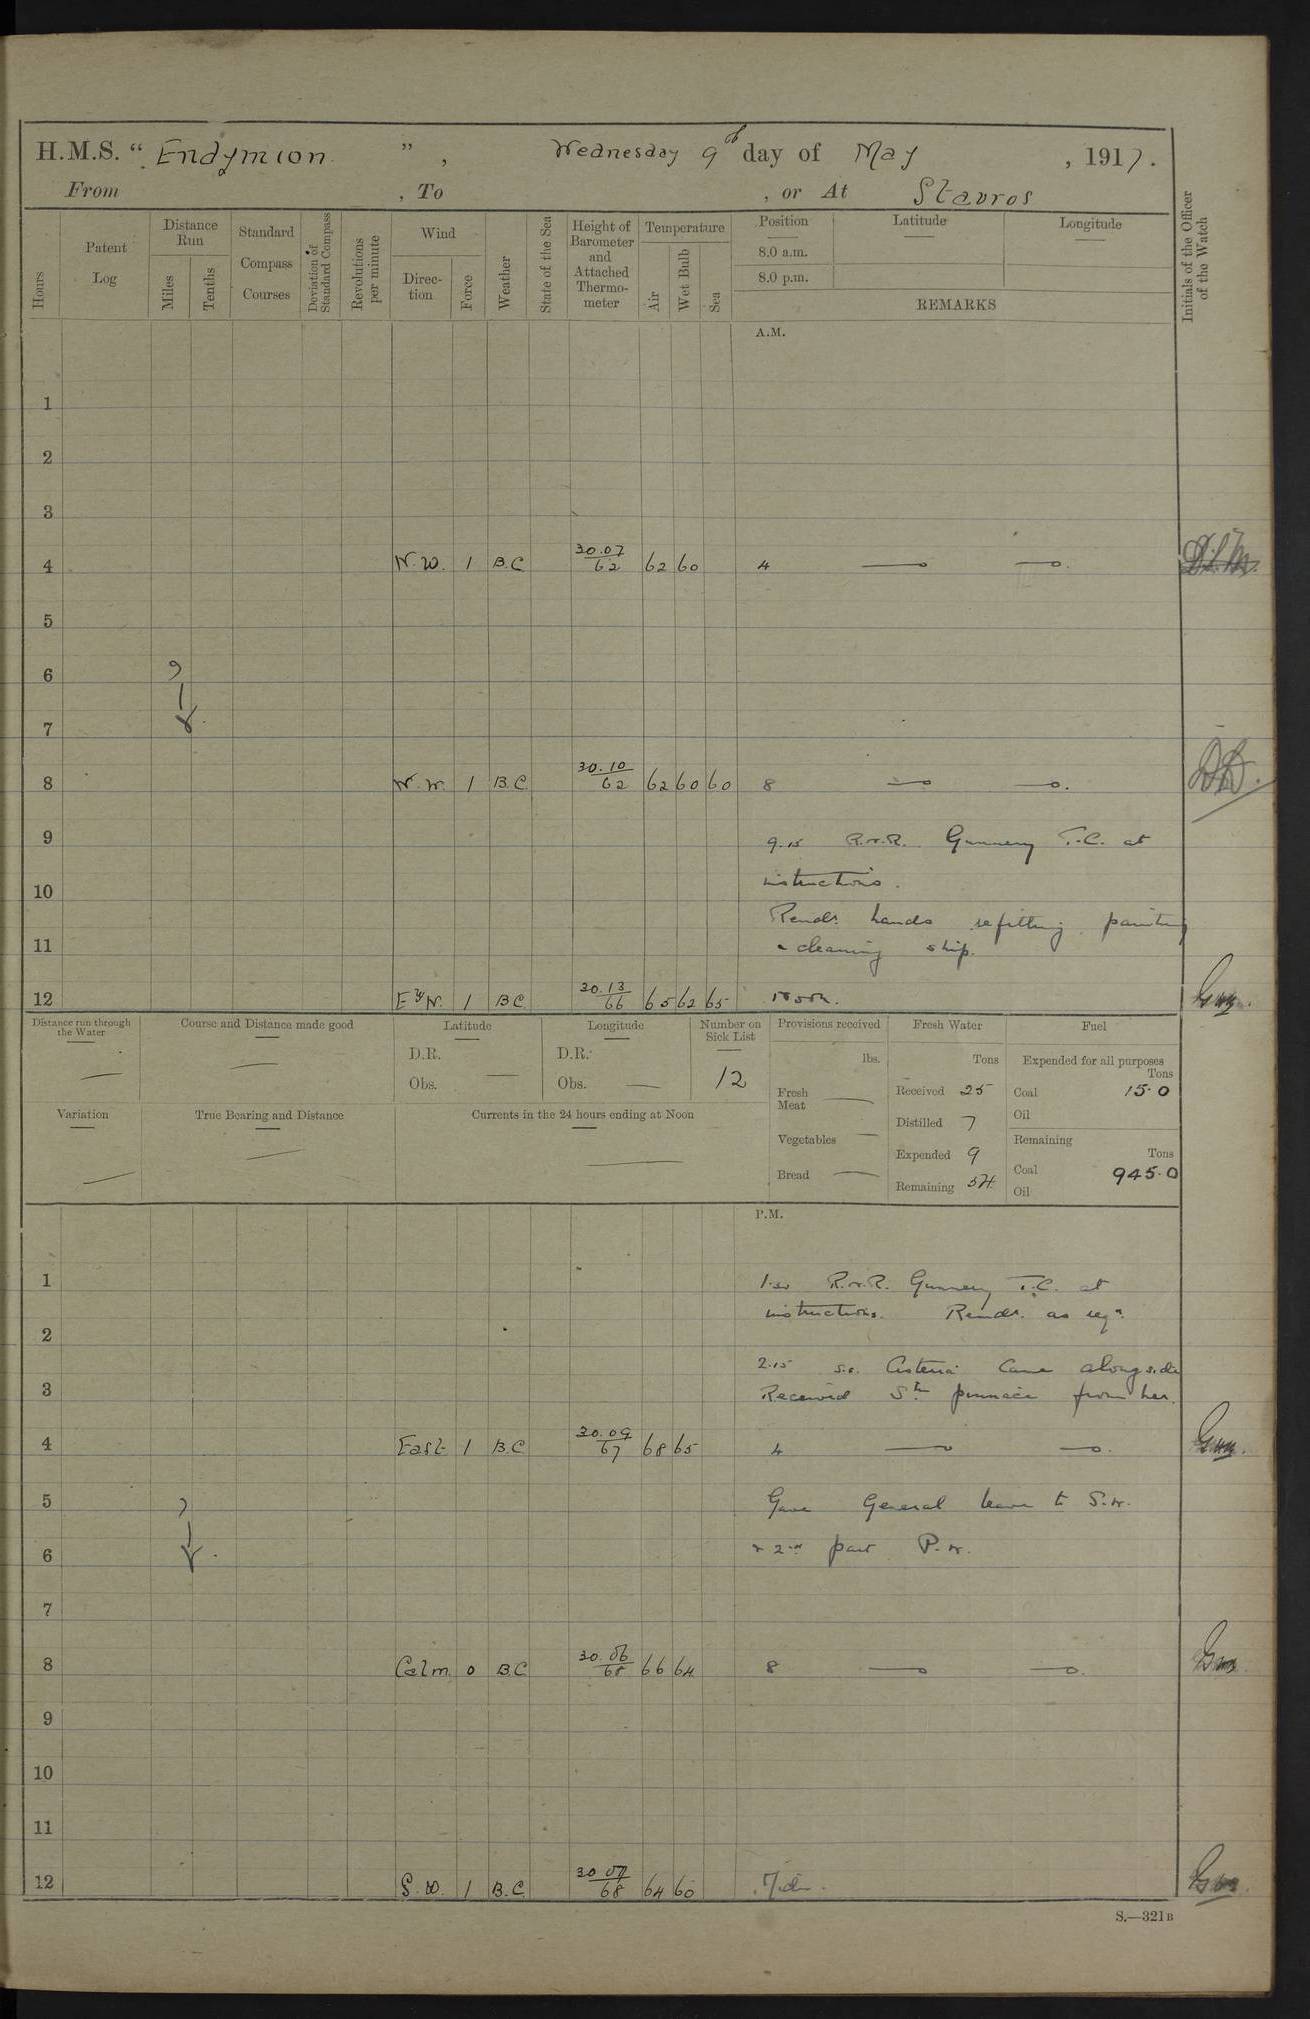 H.M.S. " Endymion " , Wednesday 9th day of May , 1917.
From , To , or At Stavros
Hours
Patent Log
Distance Run
Miles
Tenths
Standard Compass Courses
Deviation of Standard Compass
Revolutions per minute
Wind
Direction
Force
Weather
State of the Sea
Height of Barometer and Attached Thermometer
Temperature
Air
Wet Bulb
Sea
Position
8.0 a.m.
8.0 p.m.
Latitude
Longitude
REMARKS
Initials of the Officer of the Watch
A.M.
1
2
3
4 N.W. 1 B.C 30.07 62 62 60 4
5
6
7
8 N.W. 1 B.C. 30.10 62 62 60 60 8
9 9.15 R.N.R. Gunnery T.C. at
10 instructions.
Remdr. hands refitting painting
11 & cleaning ship.
12 E by N. 1 B.C. 30.13 66 65 62 65 Noon.
Distance run through the Water
Course and Distance made good
Latitude
D.R.
Obs.
Longitude
D.R.
Obs.
Number on Sick List
12
Provisions received
lbs.
Fresh Meat
Vegetables
Bread
Fresh Water
Tons
Received 25
Distilled 7
Expended 9
Remaining 54
Fuel
Expended for all purposes
Tons
Coal 15.0
Oil
Remaining
Tons
Coal 945.0
Oil
Variation
True Bearing and Distance
Currents in the 24 hours ending at Noon
P.M.
1 R.N.R. Gunnery T.C. at
instructions. Remdr. as reqd.
2
2.15 s.s. came alongside
3 Received Stm pinnace from her.
4 East 1 B.C. 30.09 67 68 65 4
5 Gave General leave to S.W.
6 & 2nd part P.W.
7
8 Calm 0 B.C. 30.06 68 66 64 8
9
10
11
12 S.W. 1 B.C. 30.07 68 64 60 Mid.
S.—321B